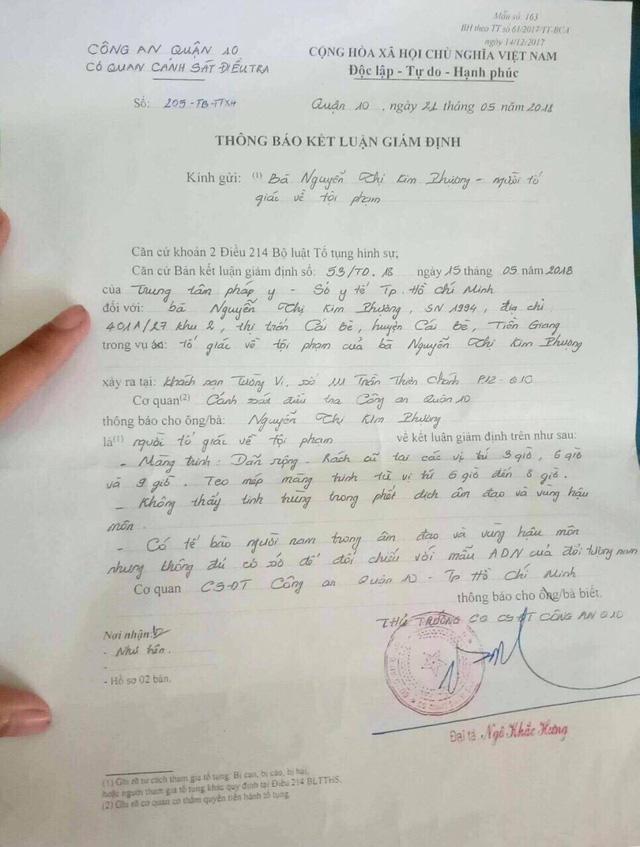 Mẫu số: 163
BH theo TT số 61/2017/TT-BCA
ngày 14/12/2017
CÔNG AN QUẬN 10
CƠ QUAN CẢNH SÁT ĐIỀU TRA
CỘNG HÒA XÃ HỘI CHỦ NGHĨA VIỆT NAM
Độc lập - Tự do - Hạnh phúc
Số: 205-TB-TTXH
Quận 10, ngày 21 tháng 05 năm 2018
THÔNG BÁO KẾT LUẬN GIÁM ĐỊNH
Kính gửi: (1) Bà Nguyễn Thị Kim Phượng - người tố
giác về tội phạm
Căn cứ khoản 2 Điều 214 Bộ luật Tố tụng hình sự;
Căn cứ Bản kết luận giám định số: 53/TD.18 ngày 15 tháng 05 năm 2018
của Trung tâm pháp y - Sở y tế Tp. Hồ Chí Minh
đối với: bà Nguyễn Thị Kim Phượng, SN 1994, địa chỉ
401A/27 khu 2, thị trấn Cái Bè, huyện Cái Bè, Tiền Giang
trong vụ án: tố giác về tội phạm của bà Nguyễn Thị Kim Phượng
xảy ra tại: khách sạn Tường Vi, số 111 Trần Thiện Chánh P12-Q10
Cơ quan(2) Cảnh sát điều tra Công an Quận 10
thông báo cho ông/bà: Nguyễn Thị Kim Phượng
là(1) người tố giác về tội phạm về kết luận giám định trên như sau:
- Màng trinh: Dãn rộng - Rách cũ tại các vị trí 3 giờ, 6 giờ
và 9 giờ. Teo mép màng trinh từ vị trí 6 giờ đến 8 giờ.
- Không thấy tinh trùng trong phết dịch âm đạo và vùng hậu
môn.
- Có tế bào người nam trong âm đạo và vùng hậu môn
nhưng không đủ cơ sở để đối chiếu với mẫu ADN của đối tượng nam
Cơ quan CSĐT Công an Quận 10 - Tp Hồ Chí Minh
thông báo cho ông/bà biết.
THỦ TRƯỞNG CQ CSĐT CÔNG AN Q10
Nơi nhận:
- Như trên.
- Hồ sơ 02 bản.
Đại tá Ngô Khắc Hưng
(1) Ghi rõ tư cách tham gia tố tụng: Bị can, bị cáo, bị hại,
hoặc người tham gia tố tụng khác quy định tại Điều 214 BLTTHS.
(2) Ghi rõ cơ quan có thẩm quyền tiến hành tố tụng.